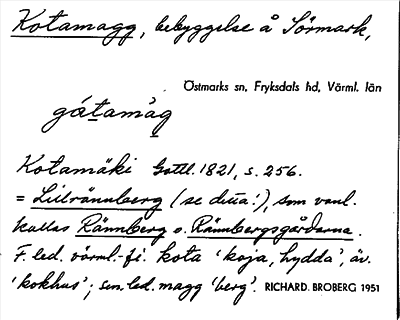 Kotamagg, bebyggelse å Sörmark,
Östmarks sn, Fryksdals hd, Värml. län
gɷ́tamàg
Kotamäki Gottl. 1821, s. 256.
= Lillrännberg (se detta!), som vanl.
kallas Rännberg o. Rännbergsgårdarna.
F. led. värml.-fi. kota 'koja, hydda', äv.
'kokhus'; sen. led. magg 'berg'. RICHARD BROBERG 1951